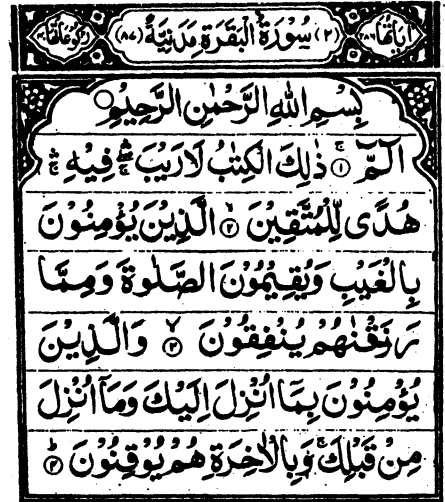 اٰيَاتُهَا ٢٨٦ (٢) سُوْرَةُ الْبَقَرَةِ مَدَنِيَّةٌ (٨٧) رُكُوْعَاتُهَا ٤٠
بِسْمِ اللّٰهِ الرَّحْمٰنِ الرَّحِيْمِ ○
الٓمّٓ ۚ ﴿١﴾ ذٰلِكَ الْكِتٰبُ لَا رَيْبَ ۛۚ فِيْهِ ۛۚ
هُدًى لِّلْمُتَّقِيْنَ ۙ ﴿٢﴾ الَّذِيْنَ يُؤْمِنُوْنَ
بِالْغَيْبِ وَيُقِيْمُوْنَ الصَّلٰوةَ وَمِمَّا
رَزَقْنٰهُمْ يُنْفِقُوْنَ ۙ ﴿٣﴾ وَالَّذِيْنَ
يُؤْمِنُوْنَ بِمَآ اُنْزِلَ اِلَيْكَ وَمَآ اُنْزِلَ
مِنْ قَبْلِكَ ۚ وَبِالْاٰخِرَةِ هُمْ يُوْقِنُوْنَ ؕ ﴿٤﴾